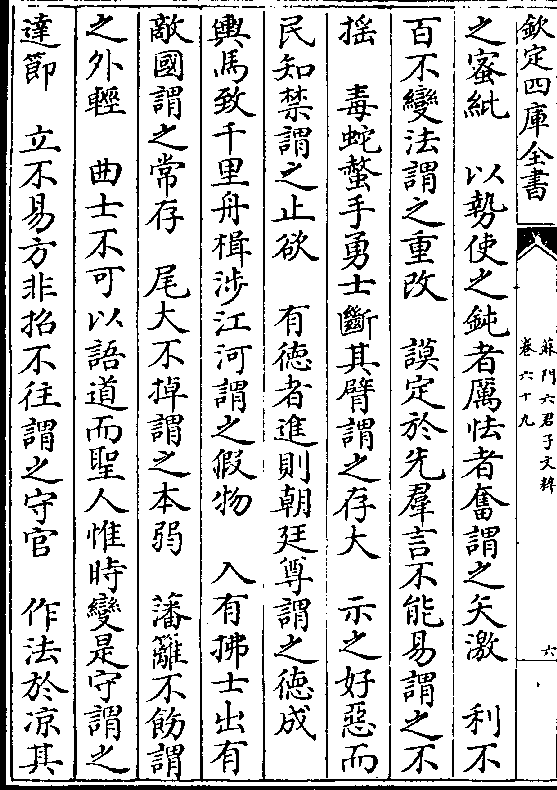 欽定四庫全書
蘇門六君子文粹
卷六十九
六
之蜜紕　以勢使之鈍者厲怯者奮謂之矢激　利不
百不變法謂之重改　謨定於先羣言不能易謂之不
揺　毒蛇螫手勇士斷其臂謂之存大　示之好惡而
民知禁謂之止欲　有德者進則朝廷尊謂之德成
輿馬致千里舟楫涉江河謂之假物　入有拂士出有
敵國謂之常存　尾大不掉謂之本弱　藩籬不飭謂
之外輕　曲士不可以語道而聖人惟時變是守謂之
達節　立不易方非招不往謂之守官　作法於凉其